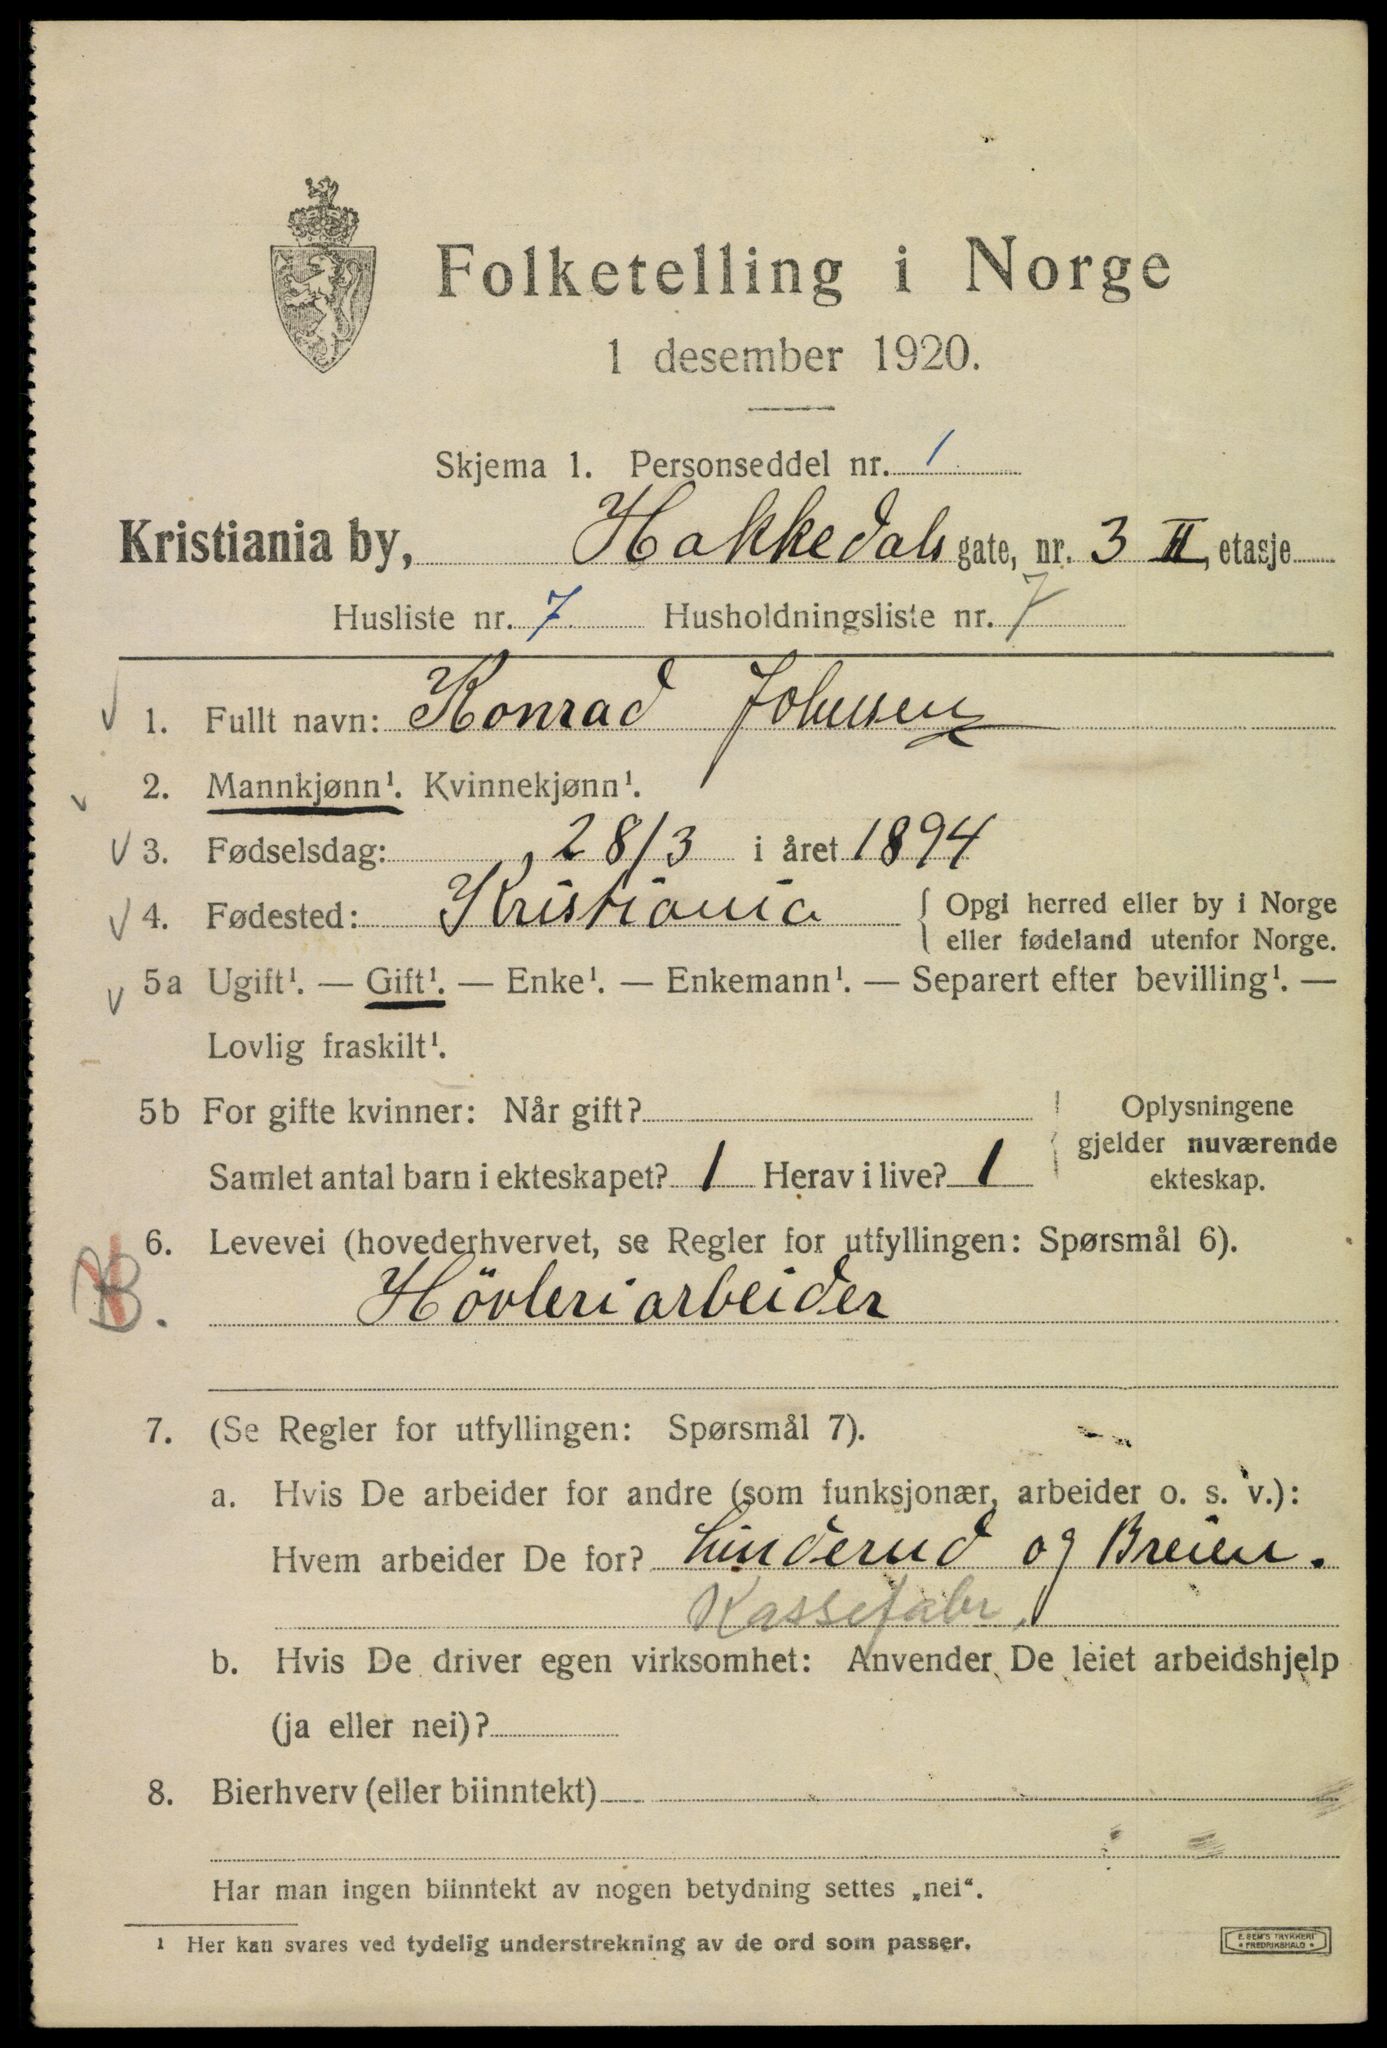 Folketelling i Norge
1 desember 1920.
Skjema 1. Personseddel nr. 1
Kristiania by, Hakkedals gate, nr. 3 II, etasje
Husliste nr. 7 Husholdningsliste nr. 7
1. Fullt navn: Konrad Johnsen
2. Mannkjønn¹. Kvinnekjønn¹.
3. Fødselsdag: 28/3 i året 1894
4. Fødested: Kristiania { Opgi herred eller by i Norge
eller fødeland utenfor Norge.
5a Ugift¹. — Gift¹. — Enke¹. — Enkemann¹. — Separert efter bevilling¹. —
Lovlig fraskilt¹.
5b For gifte kvinner: Når gift?
Samlet antal barn i ekteskapet? 1 Herav i live? 1
Oplysningene
gjelder nuværende
ekteskap.
6. Levevei (hovederhvervet, se Regler for utfyllingen: Spørsmål 6).
Hövleriarbeider
7. (Se Regler for utfyllingen: Spørsmål 7).
a. Hvis De arbeider for andre (som funksjonær, arbeider o. s. v.):
Hvem arbeider De for? Linderud og Breien.
Kassefabr.
b. Hvis De driver egen virksomhet: Anvender De leiet arbeidshjelp
(ja eller nei)?
8. Bierhverv (eller biinntekt)
Har man ingen biinntekt av nogen betydning settes „nei“.
¹ Her kan svares ved tydelig understrekning av de ord som passer.
E. SEM'S TRYKKERI
• FREDRIKSHALD •